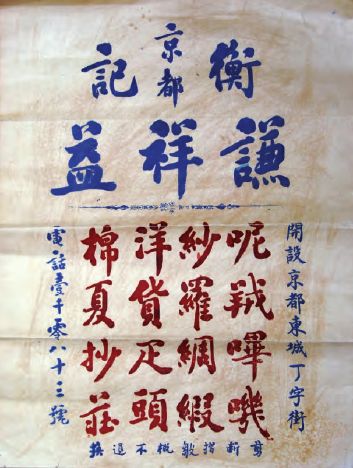 京都
衡記
謙祥益
開設京都東城丁字街
呢羢嗶嘰
紗羅綢緞
洋貨疋頭
棉夏抄莊
電話壹千零八十三號
剪斷概不退换